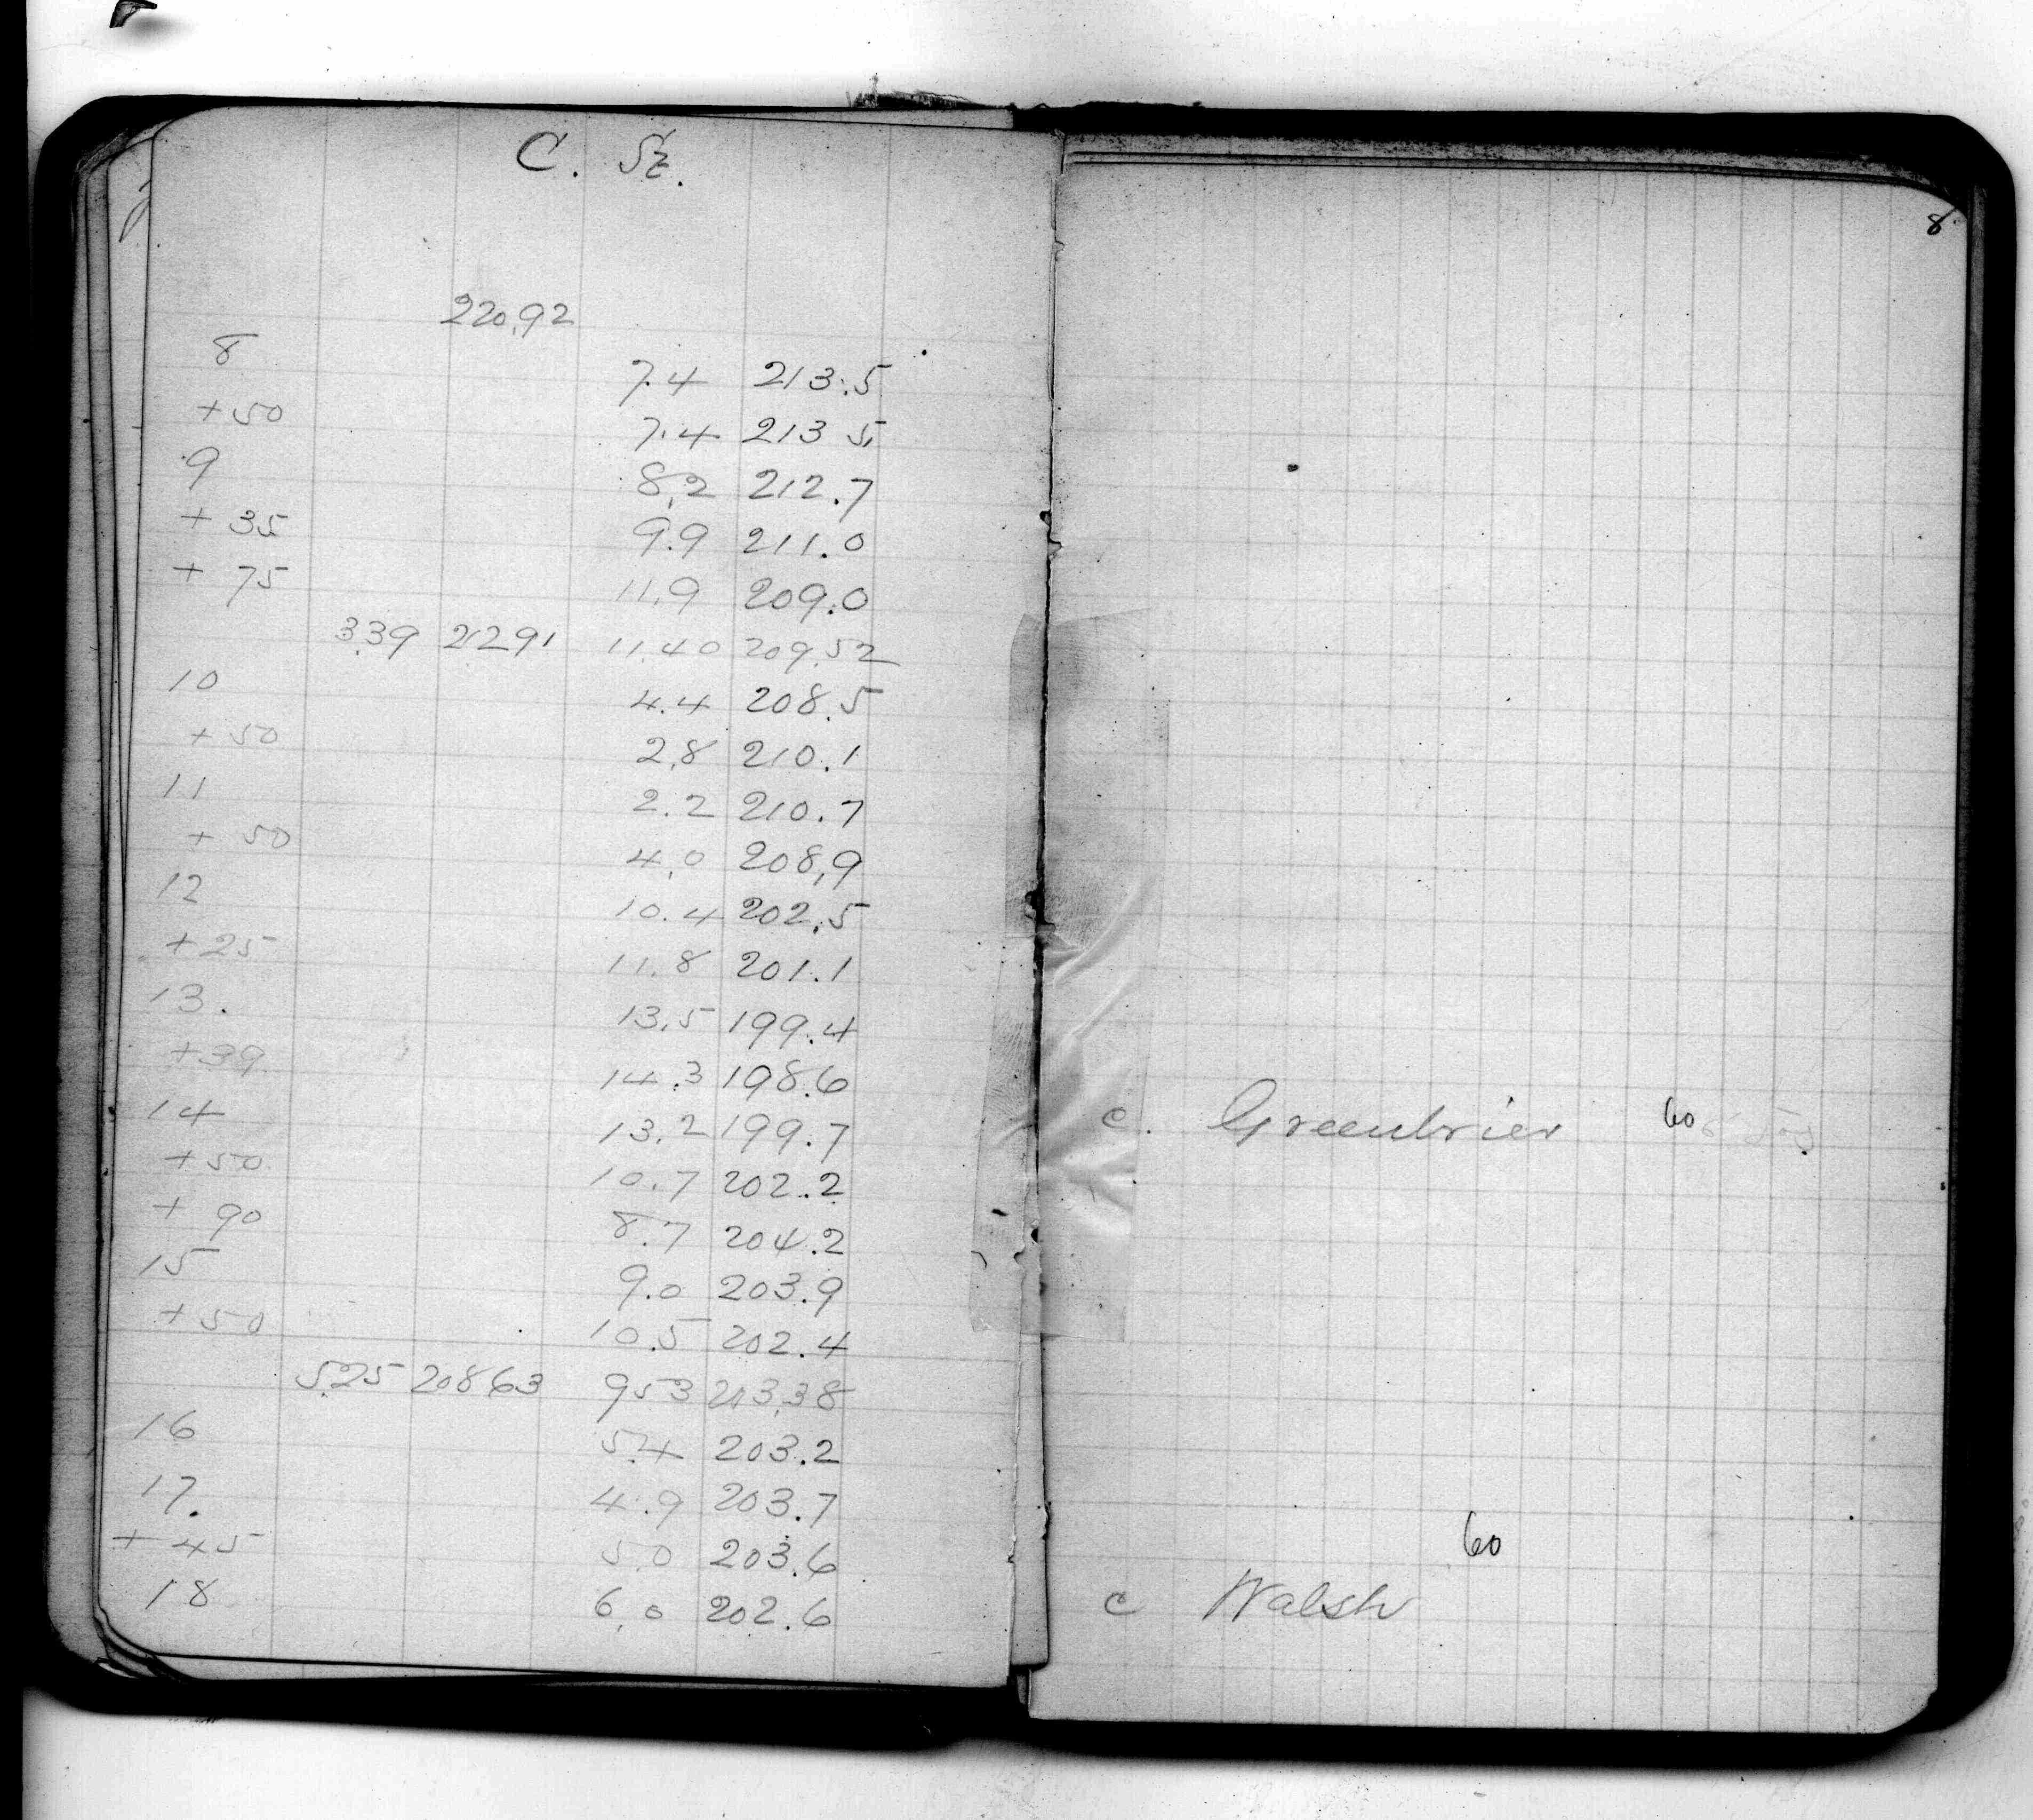 C. St.
220.92
8 7.4 213.5
+50 7.4 213 5
9 8.2 212.7
+ 35 9.9 211.0
+ 75 11.9 209.0
3.39 212 91 11.40 209.52
10 4.4 208.5
+50 2.8 210.1
11 2.2 210.7
+ 50 4.0 208.9
12 10.4 202.5
+25 11.8 201.1
13. 13.5 199.4
+39 14.3 198.6
14 13.2 199.7
+50 10.7 202.2
+ 90 8.7 204.2
15 9.0 203.9
+50 10.5 202.4
5.25 208 63 9 53 203.38
16 5.4 203.2
17. 4.9 203.7
+ 45 5 0 203.6
18 6.0 202.6
8
c. Greenbrier 60
60
c Walsh